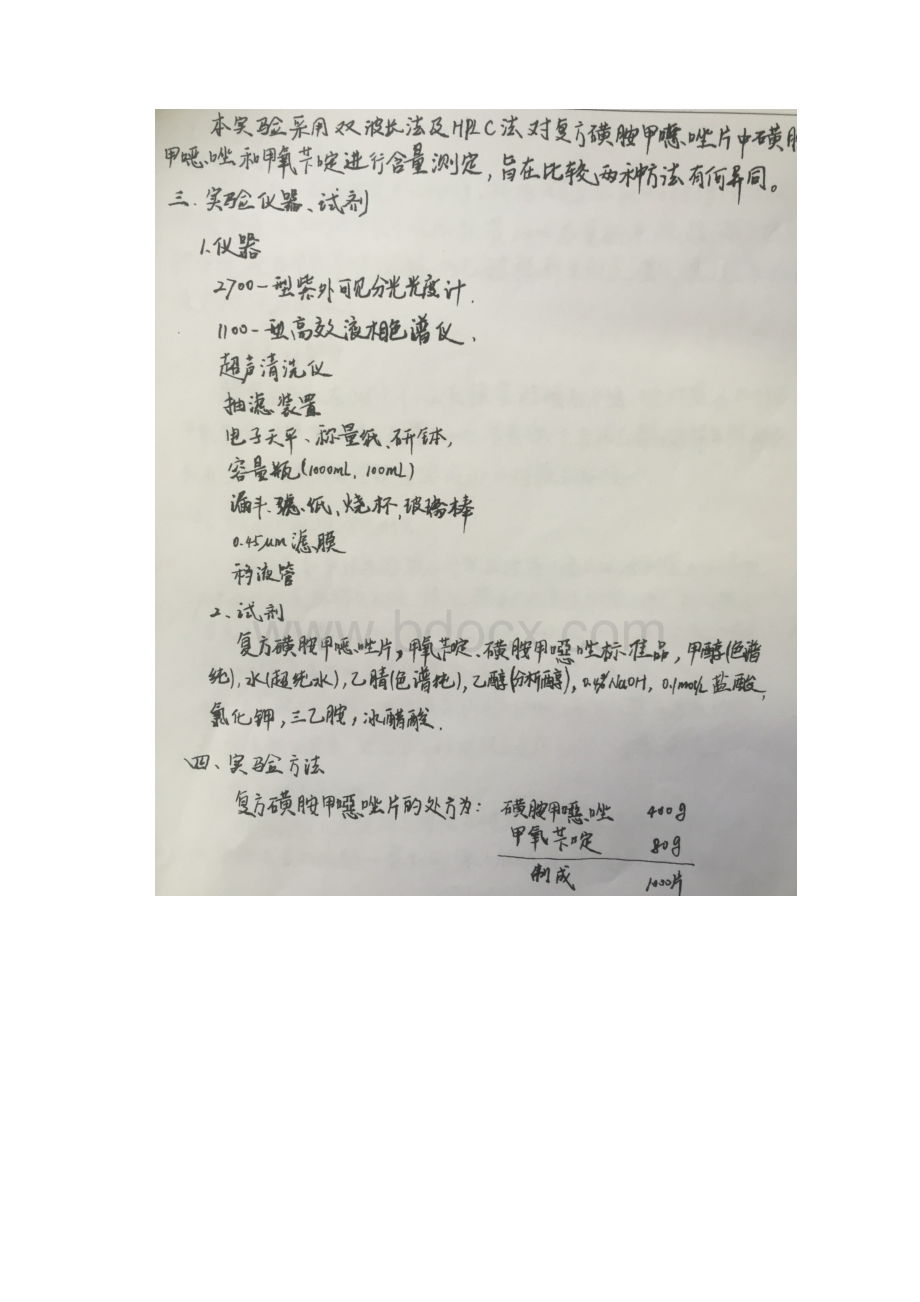 本实验采用双波长法及HPLC法对复方磺胺甲噁唑片中磺胺
甲噁唑和甲氧苄啶进行含量测定，旨在比较两种方法有何异同。
三、实验仪器、试剂
1、仪器
2700-型紫外可见分光光度计．
1100-型高效液相色谱仪、
超声清洗仪
抽滤装置
电子天平、称量纸、研钵，
容量瓶(1000mL, 100mL)
漏斗、纸、烧杯，玻璃棒
0.45μm滤膜
移液管
2、试剂
复方磺胺甲噁唑片，甲氧苄啶、磺胺甲噁唑标准品，甲醇(色谱
纯)，水(超纯水)，乙腈(色谱纯)，乙醇(分析醇)，0.4%NaOH，0.1mol/L盐酸，
氯化钾，三乙胺，冰醋酸．
四、实验方法
复方磺胺甲噁唑片的处方为：磺胺甲噁唑 400g
甲氧苄啶 80g
制成 1000片
www.bdocx.com